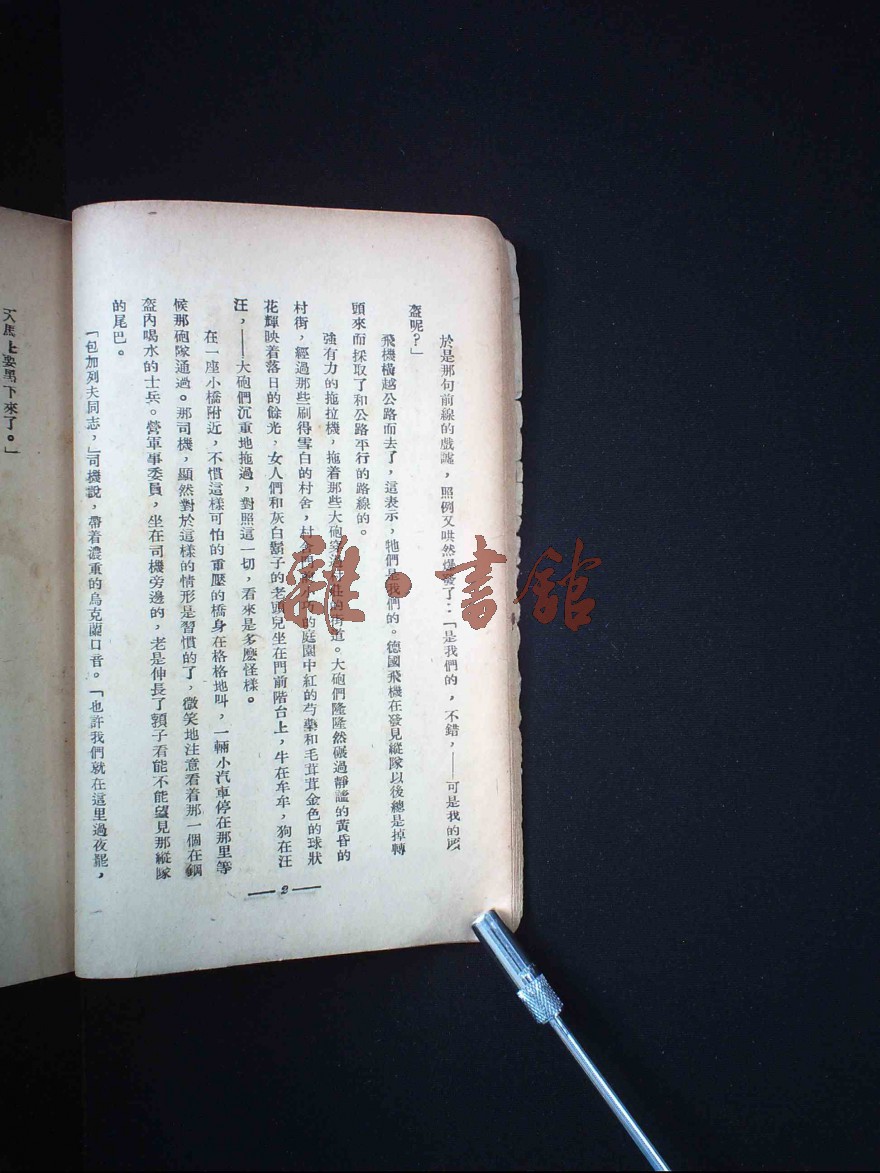 於是那句前線的戲謔，照例又哄然爆發了：「是我們的，不錯，——可是我的
盔呢？」
飛機橫越公路而去了，這表示，牠們是我們的。德國飛機在發見縱隊以後總是掉轉
頭來而採取了和公路平行的路線的。
強有力的拖拉機，拖着那些大砲穿過村莊的街道。大砲們隆隆然碾過靜謐的黃昏的
村街，經過那些刷得雪白的村舍，村舍的庭園中紅的芍藥和毛茸茸金色的球狀
花輝映着落日的餘光，女人們和灰白鬍子的老頭兒坐在門前階台上，牛在牟牟，狗在汪
汪，——大砲們沉重地拖過，對照這一切，看來是多麽怪樣。
在一座小橋附近，不慣這樣可怕的重壓的橋身在格格地叫，一輛小汽車停在那里等
候那砲隊通過。那司機，顯然對於這樣的情形是習慣的了，微笑地注意看着那一個在鋼
盔內喝水的士兵。營軍事委員，坐在司機旁邊的，老是伸長了頸子看能不能望見那縱隊
的尾巴。
「包加列夫同志，」司機說，帶着濃重的烏克蘭口音。「也許我們就在這里過夜罷，
天馬上要黑下來了。」
— 2 —
雜·書館